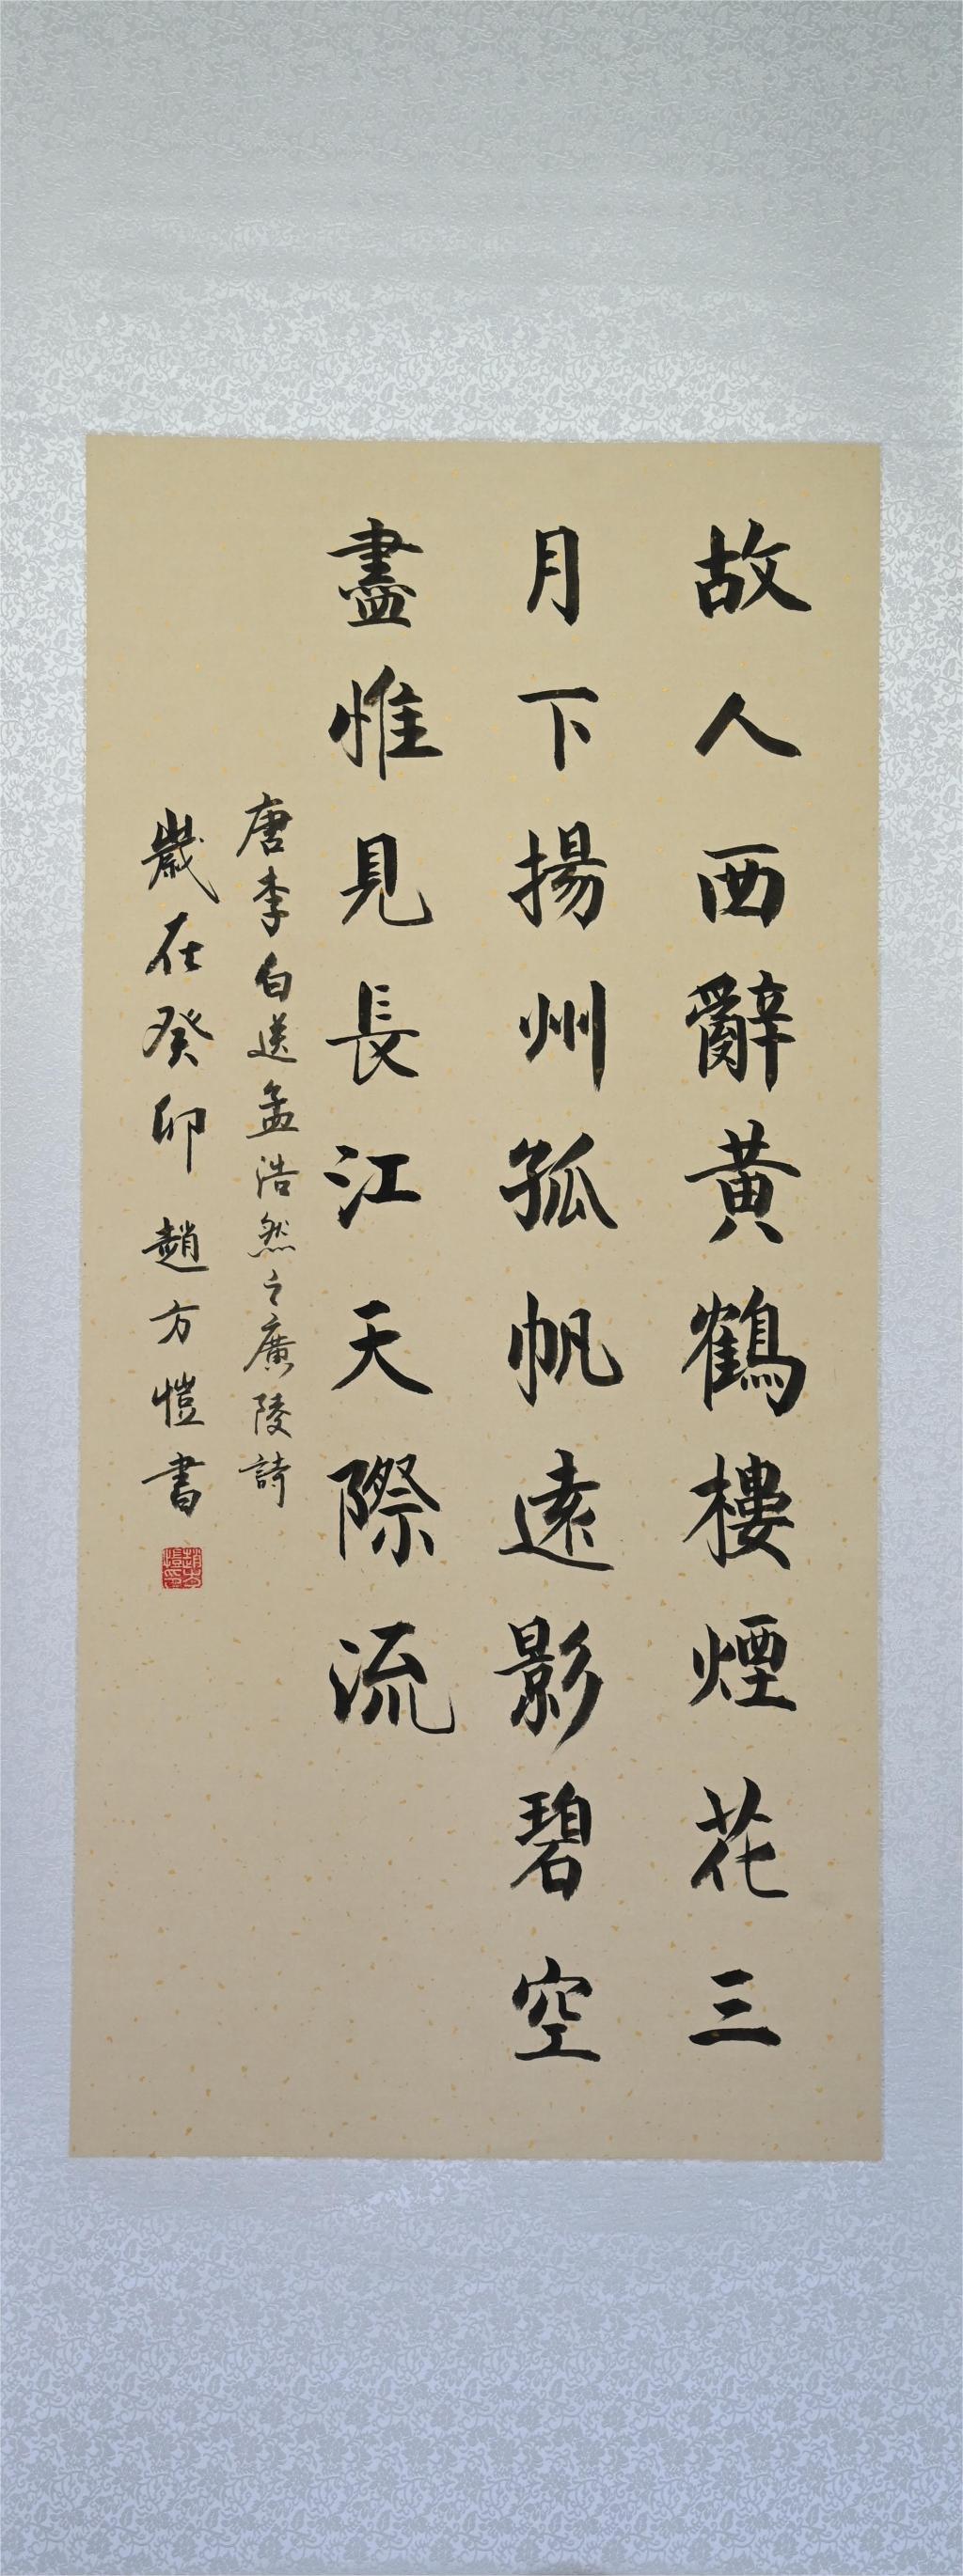 故人西辭黃鶴樓煙花三
月下揚州孤帆遠影碧空
盡惟見長江天際流
唐李白送孟浩然之廣陵詩
歲在癸卯 趙方愷書
趙方愷印